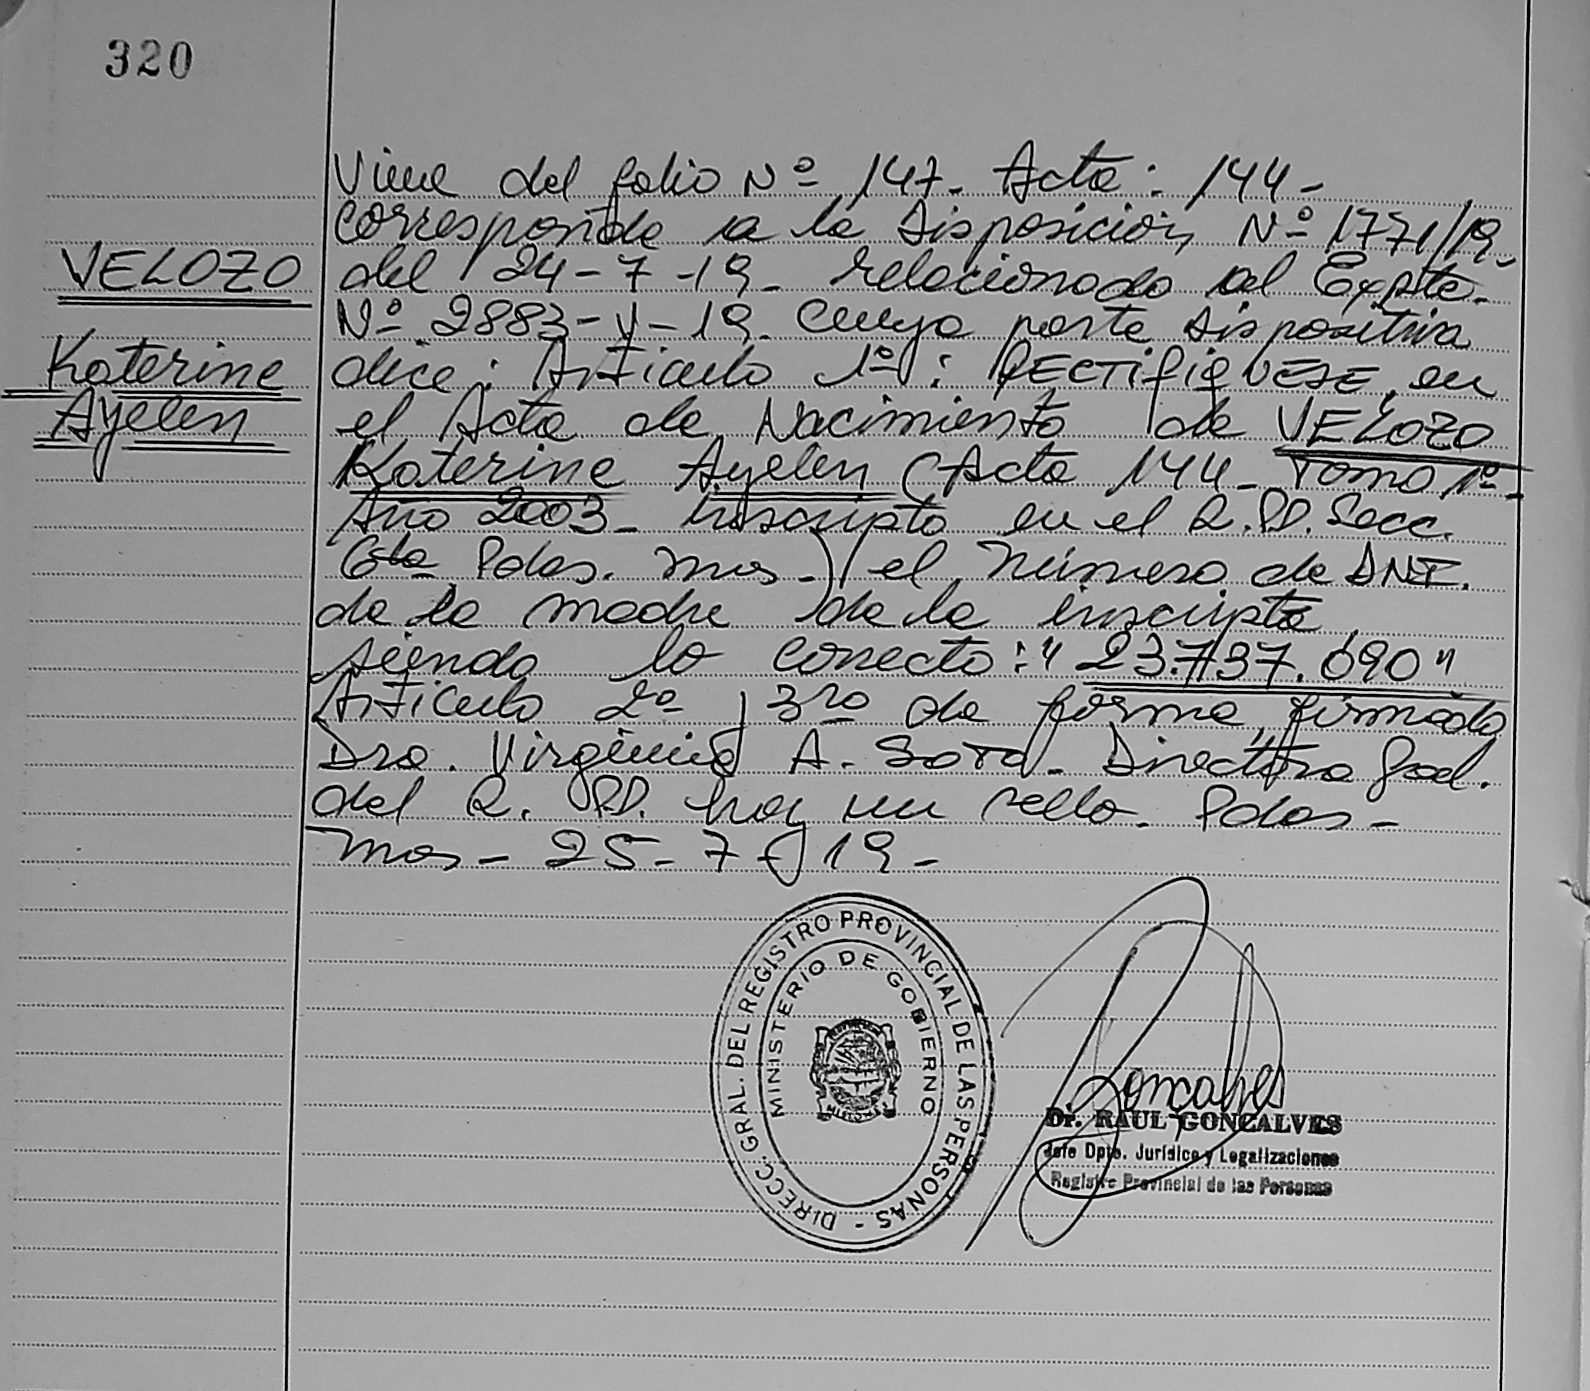 320
VELOZO
Katerine
Ayelen
Viene del folio Nº 147- Acta: 144-
corresponde a la Disposición Nº 1771/19-
del 24-7-19- relacionado al Expte.
Nº 2883-V-19- Cuya parte dispositiva
dice: Artículo 1º: RECTIFIQUESE, en
el Acta de Nacimiento de VELOZO
Katerine Ayelen (Acta 144- Tomo 1º-
Año 2003- Inscripta en el R.PP. Secc.
6ta Pdas. Mnes.) el número de DNI.
de la madre de la inscripta
siendo lo correcto: "23.737.690"
Artículo 2º y 3ro de forma, firmado
Dra. Virginia A. Soto- Directora Gral.
del R. PP. hay un sello. Pdas-
Mnes- 25-7-19-
DIRECC. GRAL. DEL REGISTRO PROVINCIAL DE LAS PERSONAS -
MINISTERIO DE GOBIERNO
MISIONES
Goncalves
Dr. RAUL GONCALVES
Jefe Dpto. Jurídico y Legalizaciones
Registro Provincial de las Personas